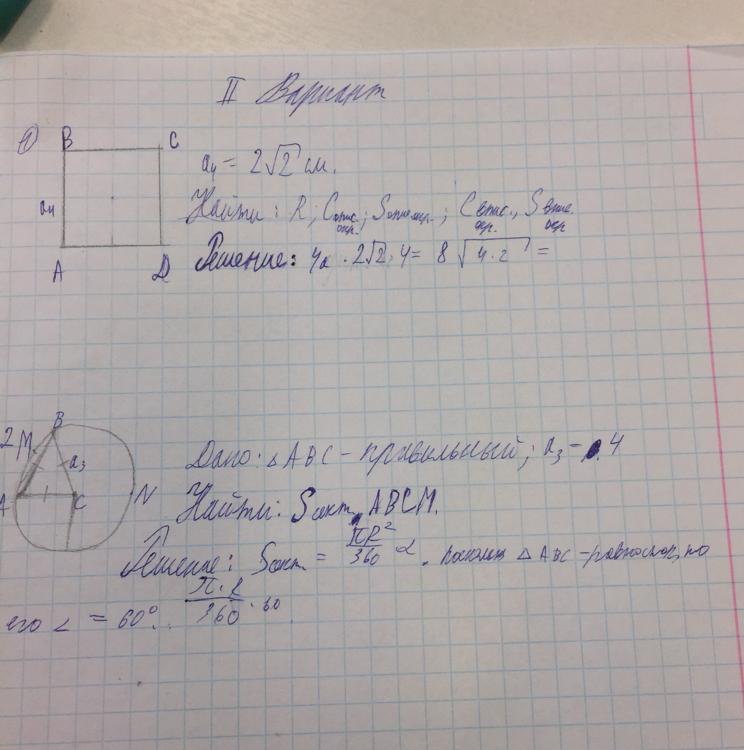 II Вариант
1
B C
a₄ = 2√2 см.
a₄
Найти: R; Cопис. окр.; Sопис. окр.; Cвпис. окр., Sвпис. окр
A D
Решение: 4a · 2√2 · 4 = 8 √4·2 =
B
2 M a₃
Дано: △ABC – правильный; a₃ – 4
A C N
Найти: Sсект. ABCM.
Решение: Sсект. = πR²/360 α. △ABC – равност., то
его ∠ = 60°. π·R/360 · 60